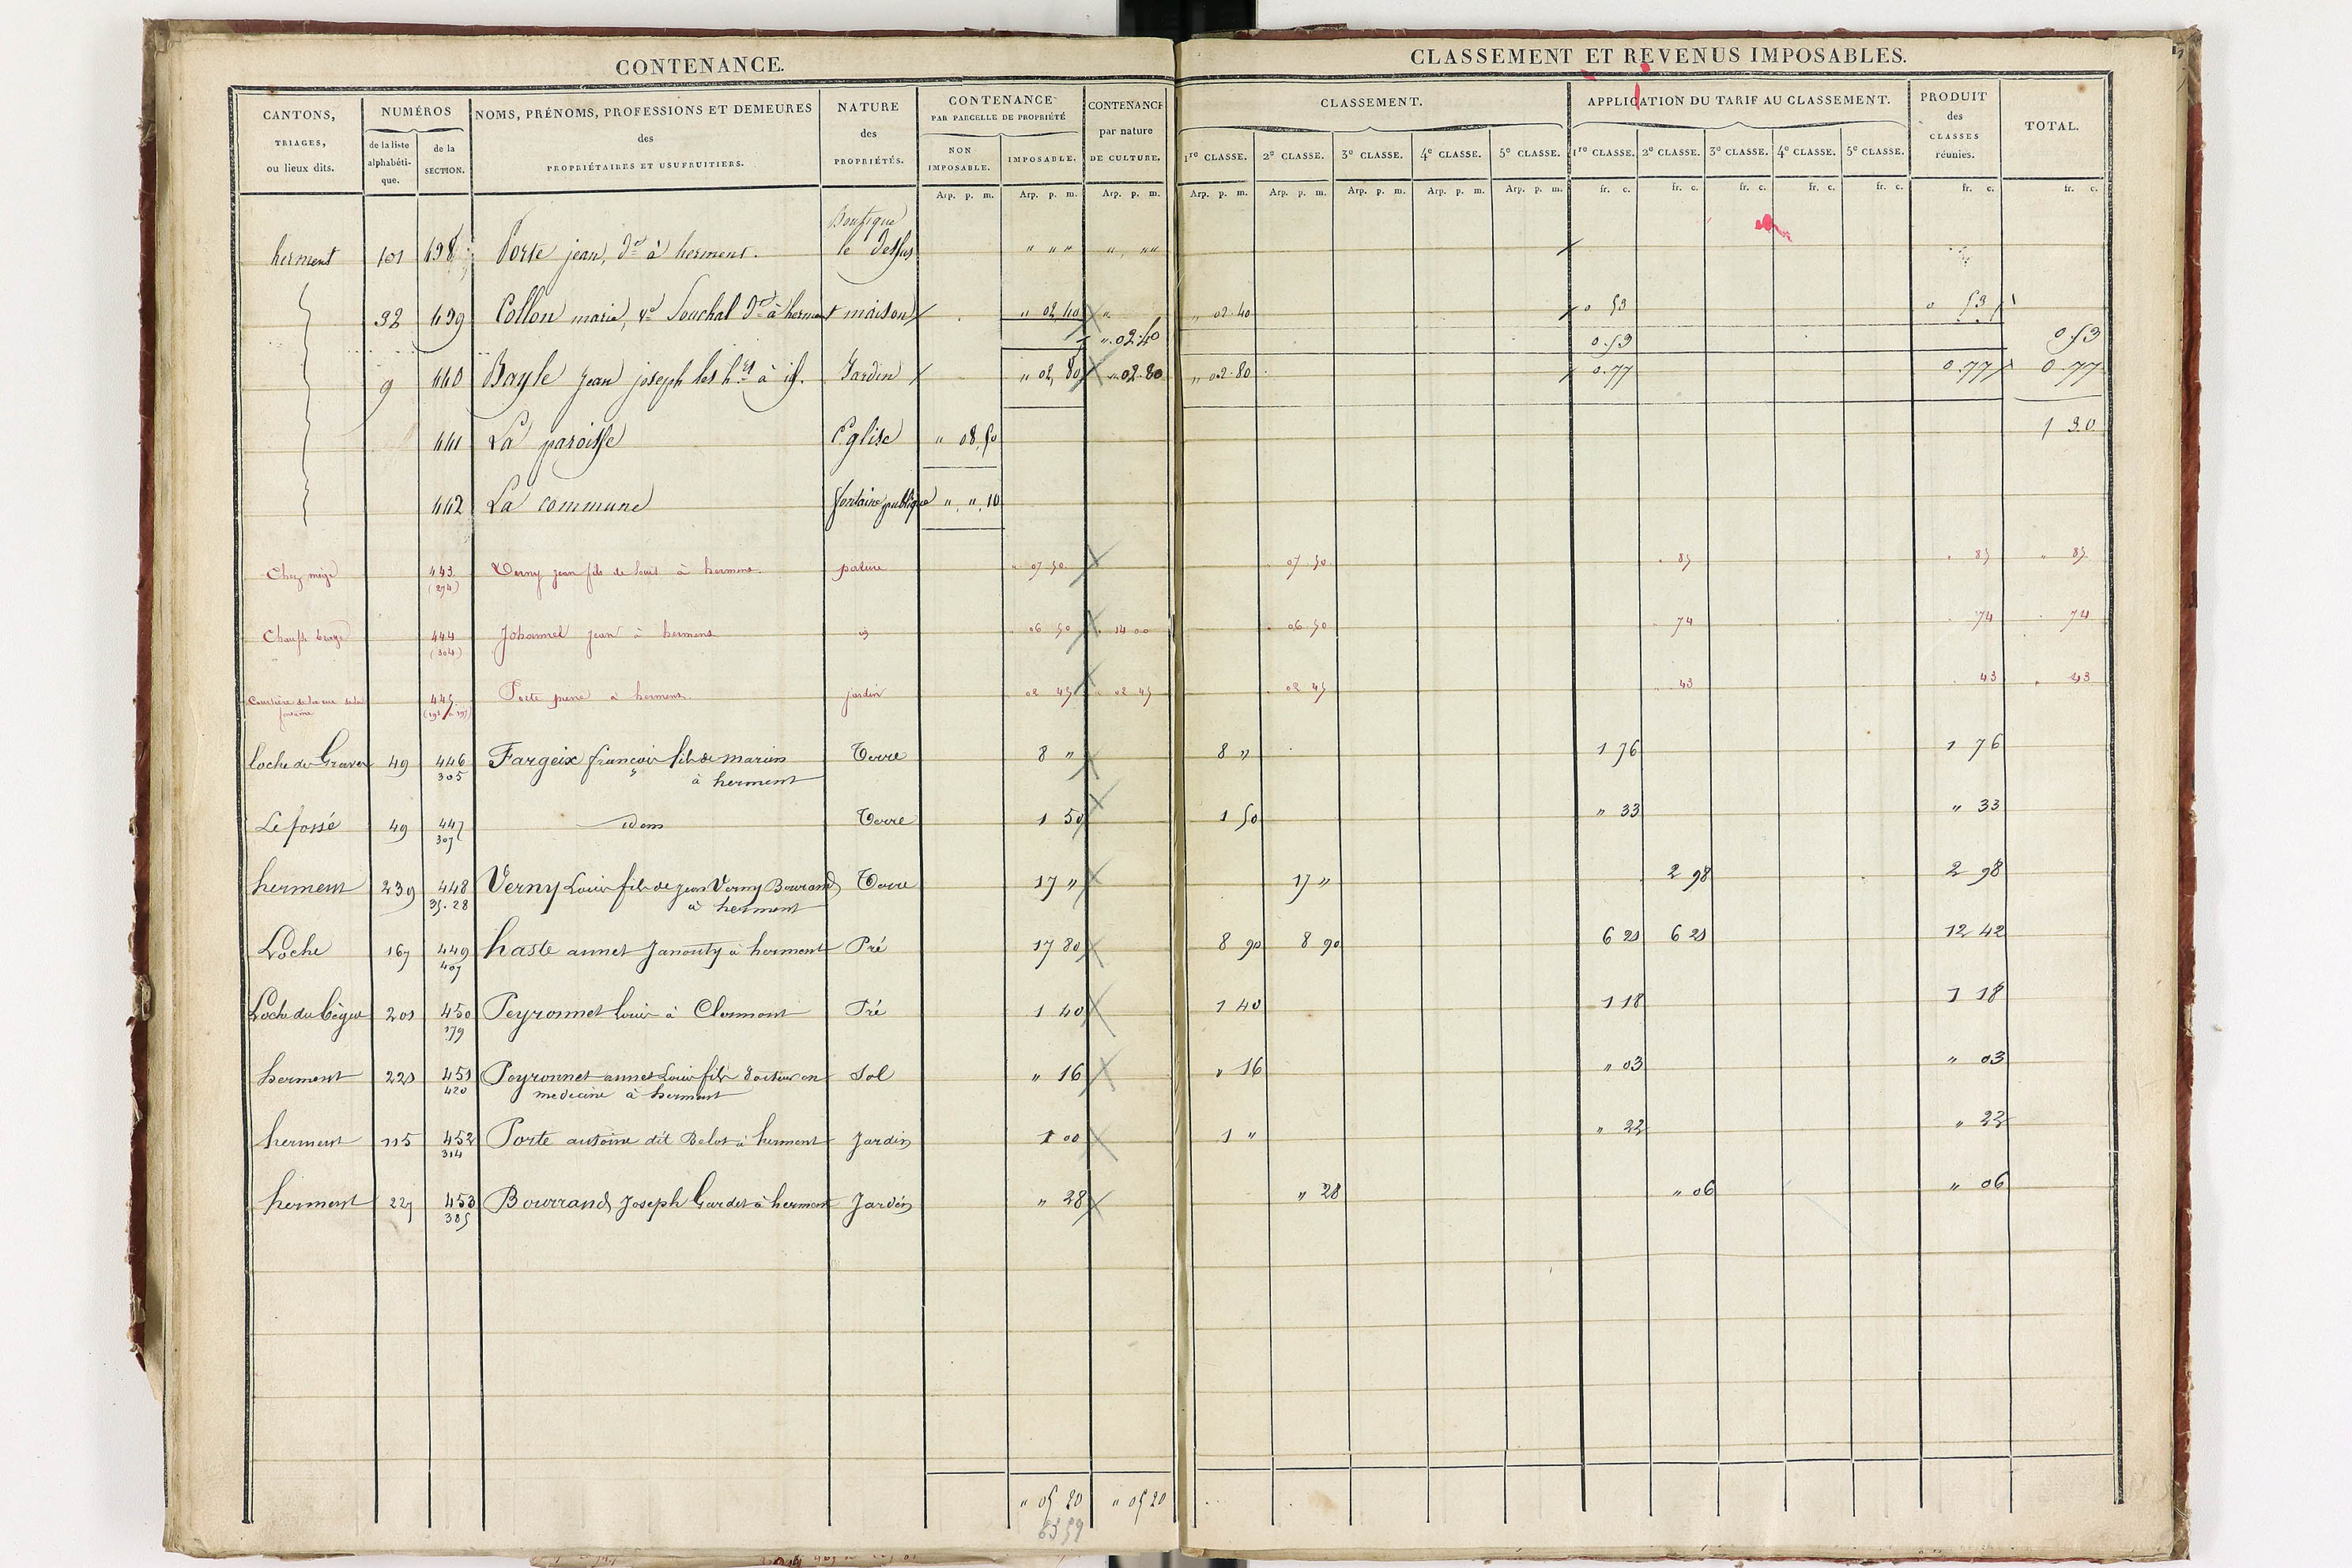 CONTENANCE.
CLASSEMENT ET REVENUS IMPOSABLES.
CANTONS, TRIAGES, ou lieux dits.
NUMÉROS
de la liste alphabétique.
de la SECTION.
NOMS, PRÉNOMS, PROFESSIONS ET DEMEURES des PROPRIÉTAIRES ET USUFRUITIERS.
NATURE des PROPRIÉTÉS.
CONTENANCE PAR PARCELLE DE PROPRIÉTÉ
NON IMPOSABLE.
IMPOSABLE.
CONTENANCE par nature DE CULTURE.
CLASSEMENT.
1re CLASSE. 2e CLASSE. 3e CLASSE. 4e CLASSE. 5e CLASSE.
APPLICATION DU TARIF AU CLASSEMENT.
1re CLASSE. 2e CLASSE. 3e CLASSE. 4e CLASSE. 5e CLASSE.
PRODUIT des CLASSES réunies.
TOTAL.
Arp. p. m. Arp. p. m. Arp. p. m. Arp. p. m. Arp. p. m. Arp. p. m. Arp. p. m. Arp. p. m. fr. c. fr. c. fr. c. fr. c. fr. c. fr. c. fr. c.
Boutique
herment 101 438 Porte jean, dt à herment. le dessus " " " " " "
32 439 Collon marie, ve Souchal dt à herment maison " 02 40 " " 02 40 0 53 0 53
" 02 40 0 53 0 53
9 440 Bayle jean joseph les hrs à id. Jardin " 02 80 " 02 80 " 02 80 0 77 0 77 0 77
441 La paroisse Eglise " 08 50 1 30
442 La commune fontaine publique " " 10
Chez mège 443 Verny jean fils de louis à herment pature " 07 50 07 50 " 85 " 85 " 85
(274)
444 Johannel jean à herment id 06 50 14 00 06 50 74 74 74
(304)
445 Porte pierre à herment jardin 02 45 02 45 02 45 43 43 43
fontaine
loche du Graver 49 446 Fargeix françois fils de marien Terre 8 " 8 " 1 76 1 76
305 à herment
Le fossé 49 447 idem Terre 1 50 1 50 " 33 " 33
307
herment 239 448 Verny Louis fils de jean Verny Bourrand Terre 17 " 17 " 2 98 2 98
35.28 à herment
Loche 167 449 haste annet Janouty à herment Pré 17 80 8 90 8 90 6 21 6 21 12 42
407
Loche du bègue 201 450 Peyronnet louis à Clermont Pré 1 40 1 40 1 18 1 18
179
herment 221 451 Peyronnet annet Louis fils docteur en Sol " 16 " 16 " 03 " 03
420 medecine à herment
herment 115 452 Porte antoine dit Belot à herment Jardin 1 00 1 " " 22 " 22
314
herment 227 453 Bourrand Joseph Gardet à herment Jardin " 28 " 28 " 06 " 06
385
" 05 20 " 05 20
63 59